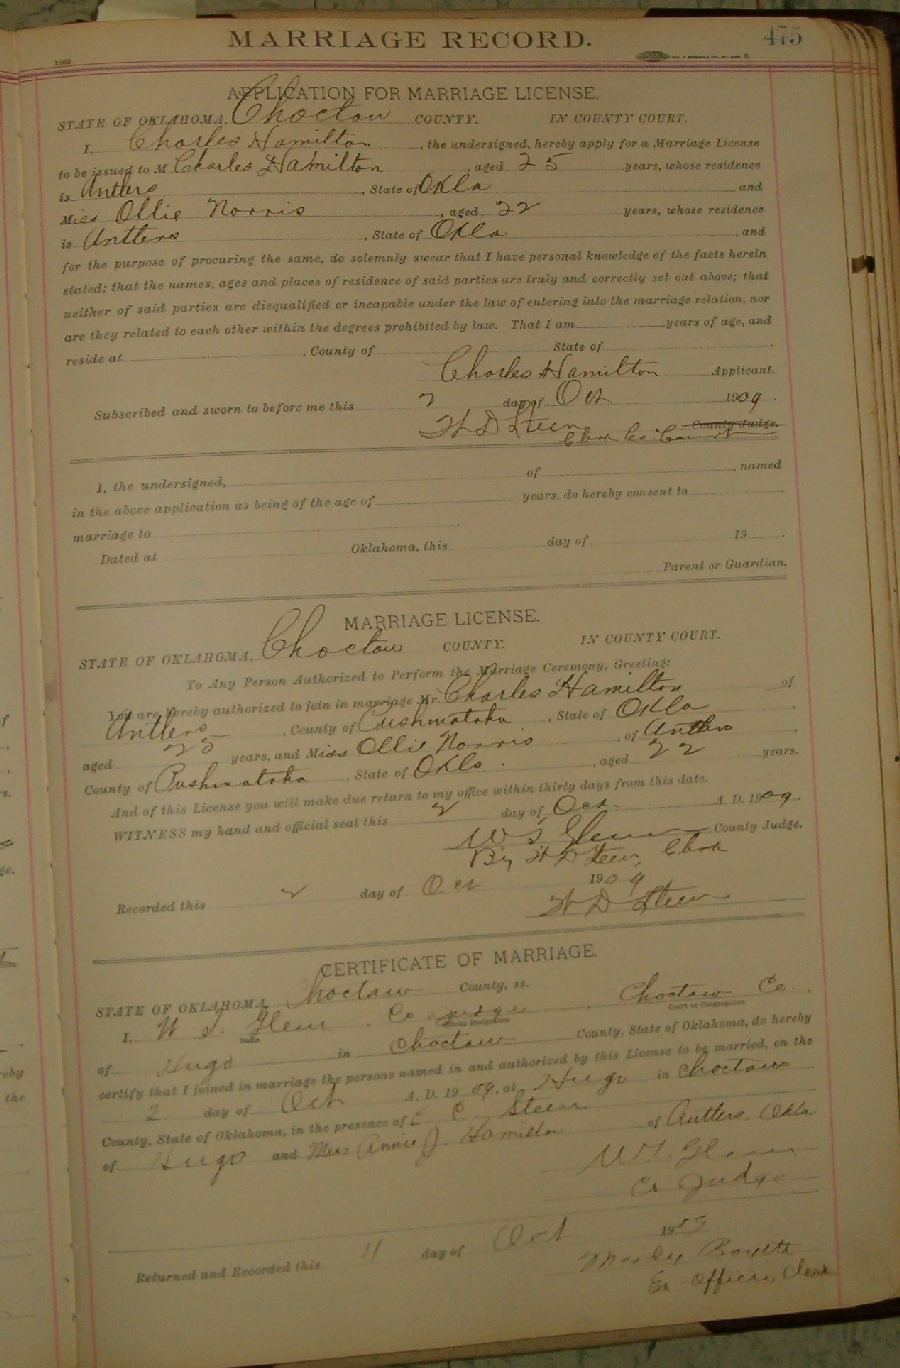 MARRIAGE RECORD.
475
APPLICATION FOR MARRIAGE LICENSE.
STATE OF OKLAHOMA, Choctaw COUNTY. IN COUNTY COURT.
I, Charles Hamilton, the undersigned, hereby apply for a Marriage License
to be issued to M Charles Hamilton, aged 25 years, whose residence
is Antlers, State of Okla and
Miss Ollie Norris, aged 22 years, whose residence
is Antlers, State of Okla, and
for the purpose of procuring the same, do solemnly swear that I have personal knowledge of the facts herein
stated; that the names, ages and places of residence of said parties are truly and correctly set out above; that
neither of said parties are disqualified or incapable under the law of entering into the marriage relation, nor
are they related to each other within the degrees prohibited by law. That I am years of age, and
reside at , County of State of .
Charles Hamilton Applicant.
Subscribed and sworn to before me this 2 day of Oct 1909.
W D Steen County Judge.
Clerk Co. Court
I, the undersigned, of , named
in the above application as being of the age of years, do hereby consent to
marriage to
Dated at Oklahoma, this day of 19 .
Parent or Guardian.
MARRIAGE LICENSE.
STATE OF OKLAHOMA, Choctaw COUNTY. IN COUNTY COURT.
To Any Person Authorized to Perform the Marriage Ceremony, Greeting:
You are hereby authorized to join in marriage Mr. Charles Hamilton of
Antlers, County of Pushmataha, State of Okla.
aged 25 years, and Miss Ollie Norris of Antlers
County of Pushmataha, State of Okla. , aged 22 years.
And of this License you will make due return to my office within thirty days from this date.
WITNESS my hand and official seal this 2 day of Oct A. D. 1909
W T Glenn County Judge.
By W D Steen, Clerk
Recorded this 2 day of Oct 1909
W D Steen
CERTIFICATE OF MARRIAGE.
STATE OF OKLAHOMA, Choctaw County, ss.
I, W T Glenn, Co Judge, Choctaw Co.
of Hugo in Choctaw County, State of Oklahoma, do hereby
certify that I joined in marriage the persons named in and authorized by this License to be married, on the
2 day of Oct A. D. 1909, at Hugo in Choctaw
County, State of Oklahoma, in the presence of E C Steen
of Hugo and Miss Annie J. Hamilton of Antlers Okla
W T Glenn
Co Judge
Returned and Recorded this 11 day of Oct 19
Ex-Officio Clerk